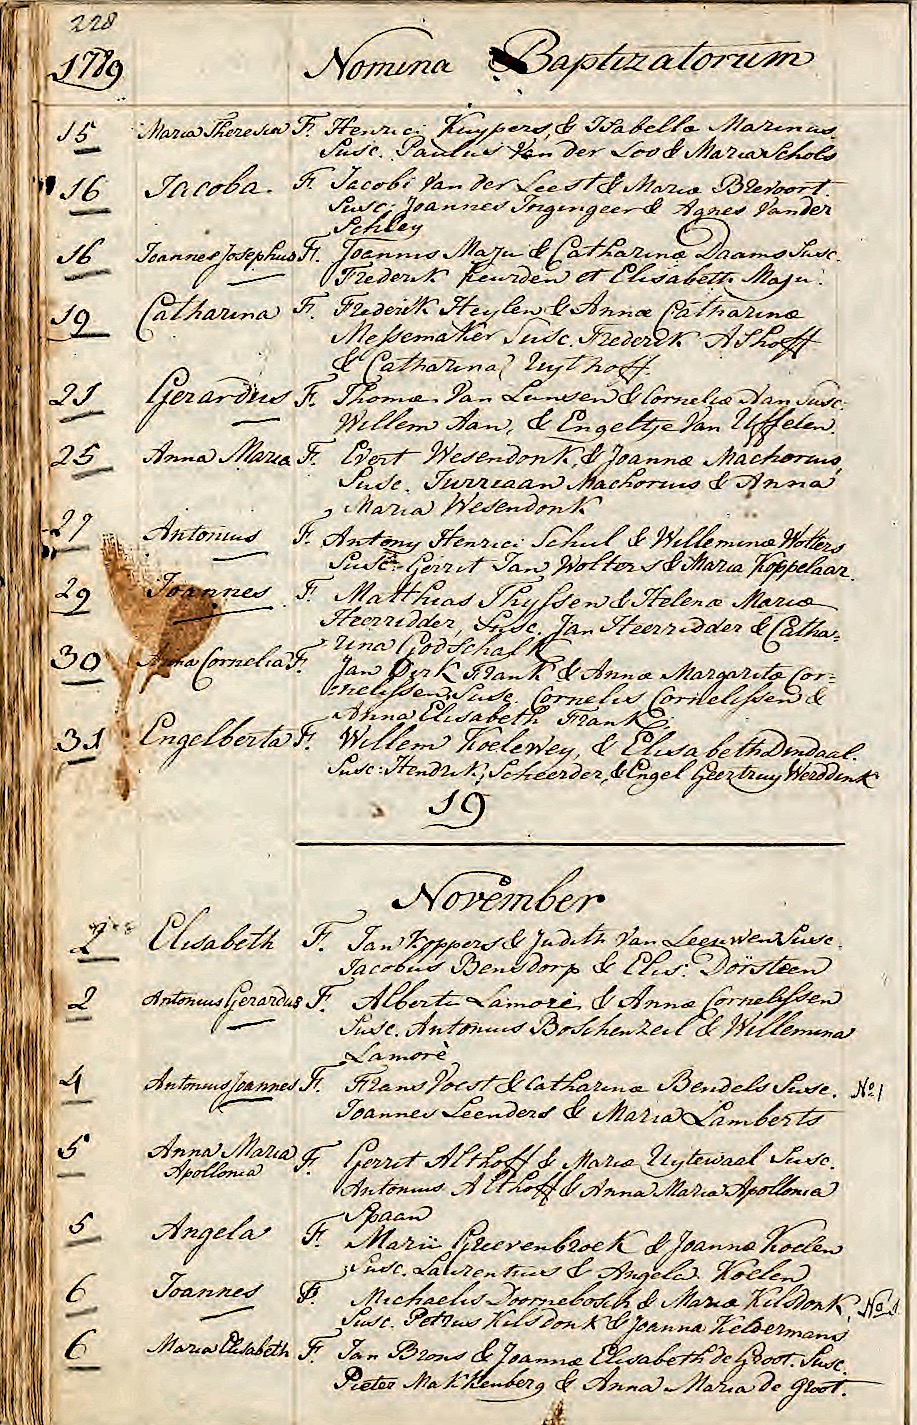 228
1789 Nomina Baptizatorum
15 Maria Theresia F. Henrici Kuypers, & Isabellæ Marinus
Susc. Paulus Van der Loo & Maria Schols
16 Jacoba. F. Jacobi Van der Leest & Mariæ Brevoort.
Susc. Joannes & Agnes Vander
Schley
16 Joannes Josephus F. Joannis Maju & Catharinæ Daams Susc.
Frederik Keurden et Elisabeth Maju.
19 Catharina F. Frederik Heylen & Annæ Catharinæ
Messemaker Susc. Frederik Althoff
& Catharina Uythoff
21 Gerardus F. Thomæ Van Lunsen & Corneliæ Nan Susc.
Willem Aan, & Engeltje Van Uffelen.
25 Anna Maria F. Evert Wesendonk, & Joannæ Machorius,
Susc. Jurriaan Machorius & Anna
Maria Wesendonk
27 Antonius F. Antony Henrici Schul & Willeminæ Wolters
Susc. Gerrit Jan Wolters & Maria Koppelaar.
29 Joannes F. Matthias Thyssen & Helenæ Mariæ
Heerridder, Susc. Jan Heerridder & Catha-
rina Godschalk
30 Anna Cornelia F. Jan Derk Frank & Annæ Margaritæ Cor-
nelissen, Susc. Cornelis Cornelissen &
Anna Elisabeth Frank.
31 Engelberta F. Willem Koelewey, & Elisabetha Dendaal.
Susc: Hendrik Scheerder, & Engel Geertruy Werddink
19
November
2 Elisabeth F. Jan Koppers & Judith Van Leeuwen Susc.
Jacobus Bensdorp & Elis: Dorsteen
2 Antonius Gerardus F. Alberti Lamorè & Annæ Cornelissen
Susc. Antonius Boschenzeil & Willemina
Lamorè
4 Antonius Joannes F. Frans Voest & Catharinæ Bendels Susc. No 1
Joannes Leenders & Maria Lamberts
5 Anna Maria
Apollonia F. Gerrit Althoff & Mariæ Uytewaal Susc.
Antonius Althoff & Anna Maria Apollonia
Spaan
5 Angela F. Marii Greevenbroek & Joannæ Koelen
Susc. Laurentius & Angela Koelen
6 Joannes F. Michaelis Doornebosch & Mariæ Kilsdonk, No 1.
Susc. Petrus Kilsdonk & Joanna Keldermans
6 Maria Elisabeth F. Jan Brons & Joannæ Elisabeth de Groot. Susc.
Pieter Makkenberg & Anna Maria de Groot.